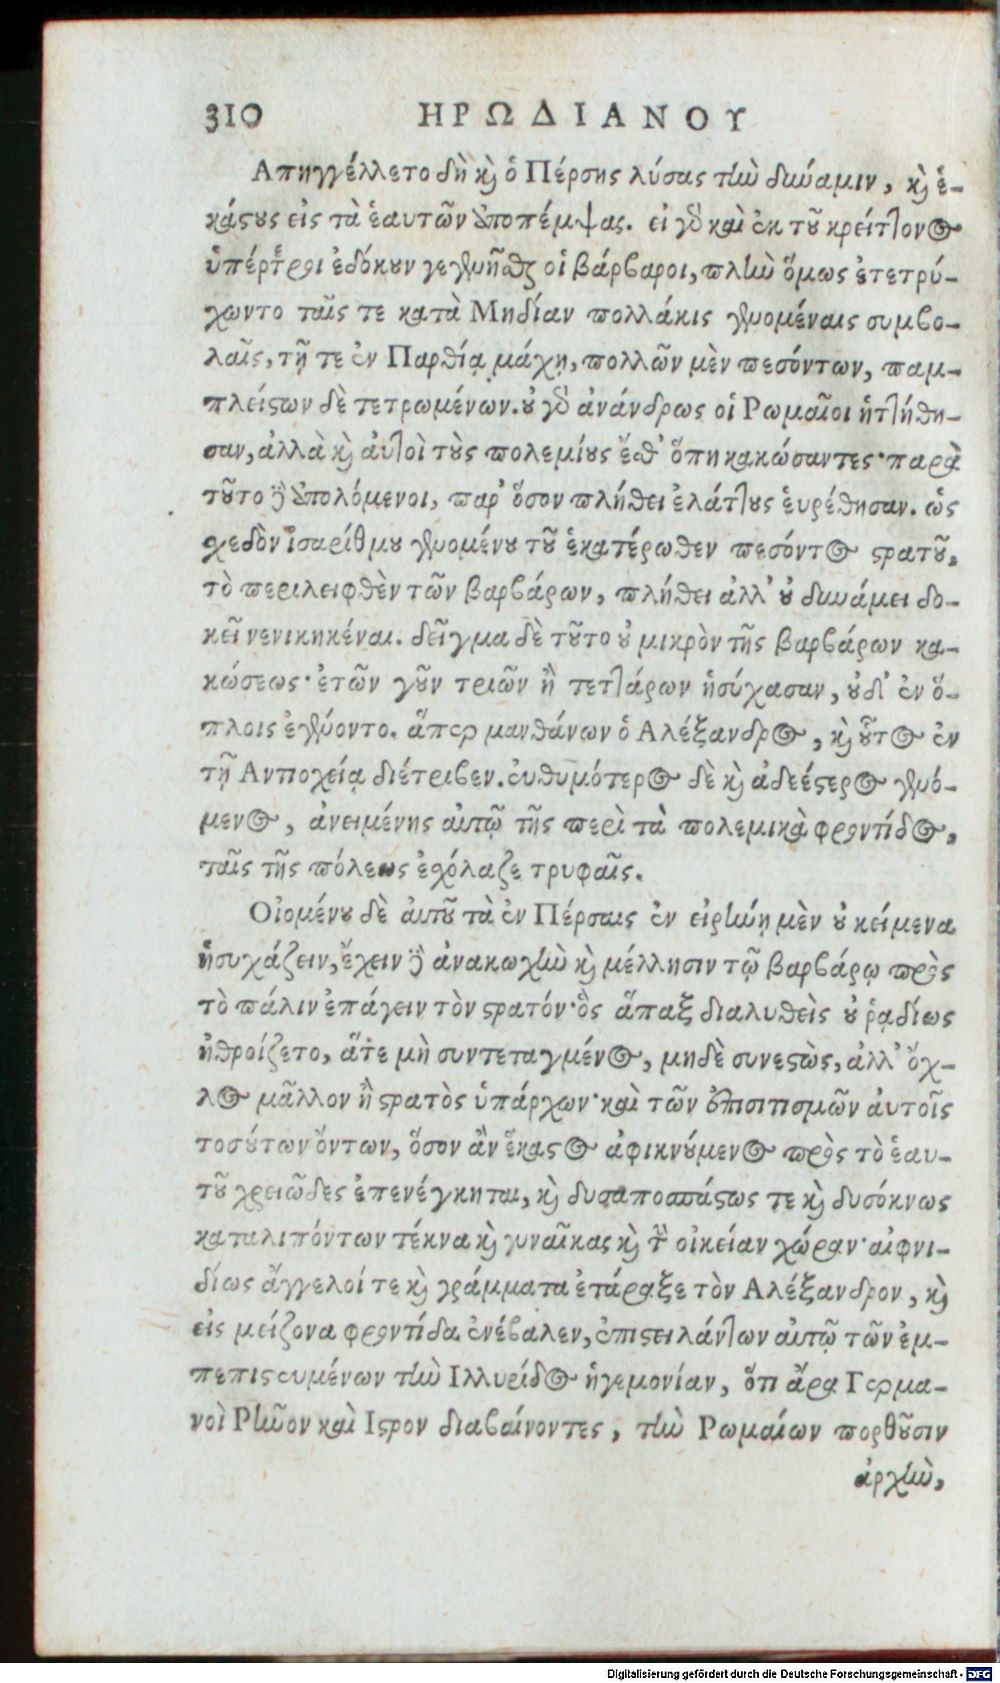 310 ΗΡΩΔΙΑΝΟΥ
Απηγγέλλετο δὴ καὶ ὁ Πέρσης λύσας τὴν δύναμιν, καὶ ἑ-
κάστους εἰς τὰ ἑαυτῶν ἀποπέμψας. εἰ γὰρ καὶ ἐκ τοῦ κρείττονος
ὑπέρτεροι ἐδόκουν γεγενῆσθαι οἱ βάρβαροι, πλὴν ὅμως ἐτετρύ-
χωντο ταῖς τε κατὰ Μηδίαν πολλάκις γενομέναις συμβο-
λαῖς, τῇ τε ἐν Παρθίᾳ μάχῃ, πολλῶν μὲν πεσόντων, παμ-
πλείστων δὲ τετρωμένων. οὐ γὰρ ἀνάνδρως οἱ Ρωμαῖοι ἡττήθη-
σαν, ἀλλὰ καὶ αὐτοὶ τοὺς πολεμίους ἔσθ' ὅπη κακώσαντες· παρὰ
τοῦτο δὲ ἀπολόμενοι, παρ' ὅσον πλήθει ἐλάττους ἑυρέθησαν. ὡς
σχεδὸν ἰσαρίθμου γενομένου τοῦ ἑκατέρωθεν πεσόντος στρατοῦ,
τὸ περιλειφθὲν τῶν βαρβάρων, πλήθει ἀλλ' οὐ δυνάμει δο-
κεῖ νενικηκέναι. δεῖγμα δὲ τοῦτο οὐ μικρὸν τῆς βαρβάρων κα-
κώσεως· ἐτῶν γοῦν τριῶν ἢ τεττάρων ἡσύχασαν, οὐδ' ἐν ὅ-
πλοις ἐγένοντο. ἅπερ μανθάνων ὁ Αλέξανδρος, καὶ οὗτος ἐν
τῇ Αντιοχείᾳ διέτριβεν. εὐθυμότερος δὲ καὶ ἀδεέστερος γενό-
μενος, ἀνειμένης αὐτῷ τῆς περὶ τὰ πολεμικὰ φροντίδος,
ταῖς τῆς πόλεως ἐσχόλαζε τρυφαῖς.
Οἰομένου δὲ αὐτοῦ τὰ ἐν Πέρσαις ἐν εἰρήνῃ μὲν οὐ κείμενα
ἡσυχάζειν, ἔχειν δὲ ἀνακωχὴν καὶ μέλλησιν τῷ βαρβάρῳ πρὸς
τὸ πάλιν ἐπάγειν τὸν στρατόν· ὃς ἅπαξ διαλυθεὶς οὐ ῥᾳδίως
ἠθροίζετο, ἅτε μὴ συντεταγμένος, μηδὲ συνεστὼς, ἀλλ' ὄχ-
λος μᾶλλον ἢ στρατὸς ὑπάρχων· καὶ τῶν ἐπισιτισμῶν ἀυτοῖς
τοσούτων ὄντων, ὅσον ἂν ἕκαστος ἀφικνούμενος πρὸς τὸ ἑαυ-
τοῦ χρειῶδες ἐπενέγκηται, καὶ δυσαποσπάστως τε καὶ δυσόκνως
καταλιπόντων τέκνα καὶ γυναῖκας καὶ τὴν οἰκείαν χώραν· αἰφνι-
δίως ἄγγελοί τε καὶ γράμματα ἐτάραξε τὸν Αλέξανδρον, καὶ
εἰς μείζονα φροντίδα ἐνέβαλεν, ἐπιστειλάντων αὐτῷ τῶν ἐμ-
πεπιστευμένων τὴν Ιλλυρίδος ἡγεμονίαν, ὅτι ἄρα Γερμα-
νοὶ Ρῆνον καὶ Ιστρον διαβαίνοντες, τὴν Ρωμαίων πορθοῦσιν
ἀρχὴν,
Digitalisierung gefördert durch die Deutsche Forschungsgemeinschaft - DFG